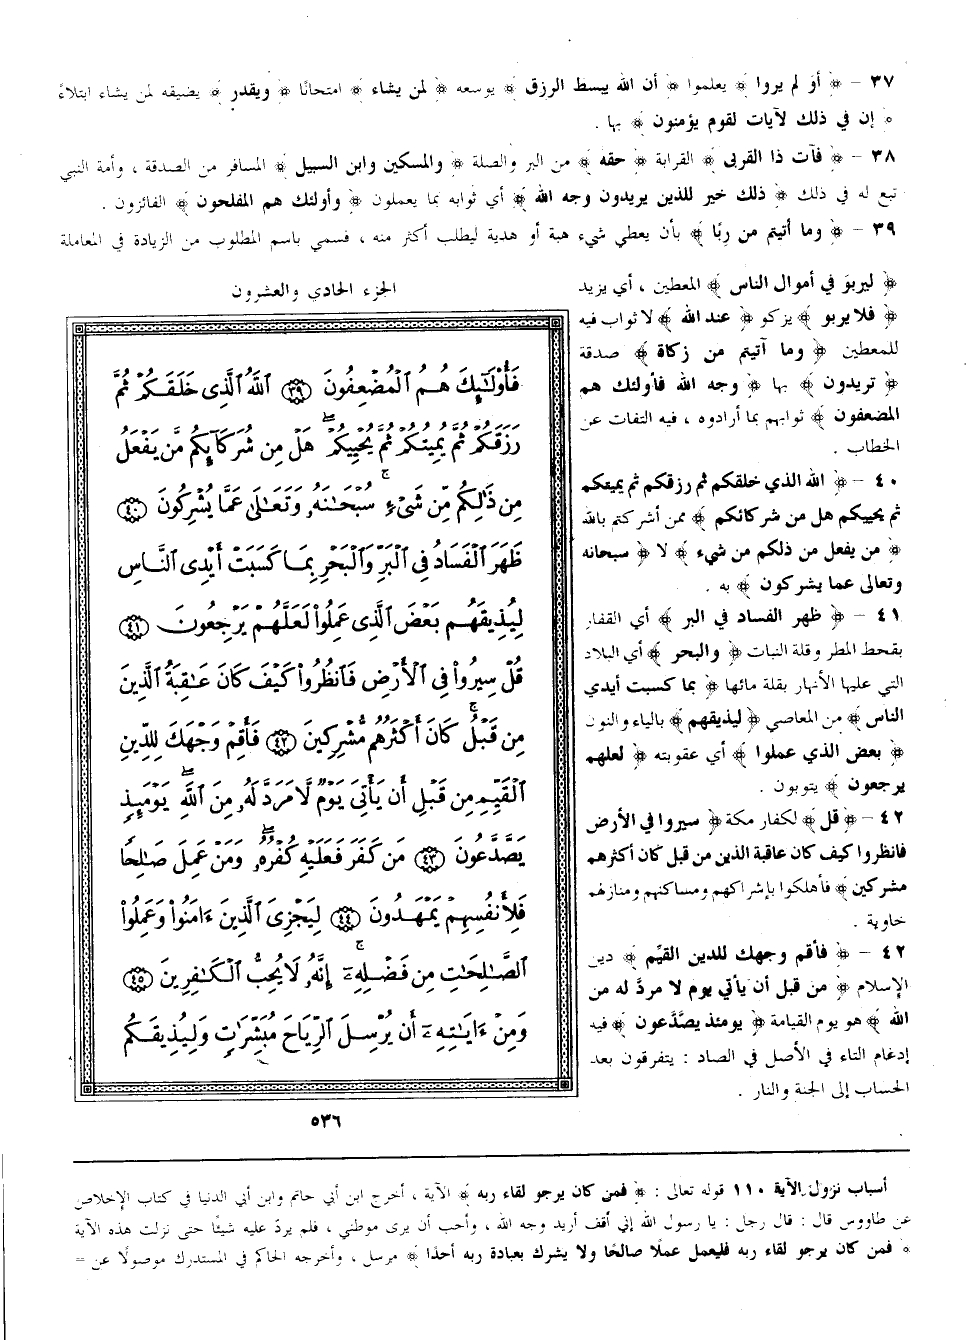 ٣٧ – ﴿ أو لم يروا ﴾ يعلموا ﴿ أن الله يبسط الرزق ﴾ يوسعه ﴿ لمن يشاء ﴾ امتحانًا ﴿ ويقدر ﴾ يضيقه لمن يشاء ابتلاءً
﴿ إن في ذلك لآيات لقوم يؤمنون ﴾ بها .
٣٨ – ﴿ فآت ذا القربى ﴾ القرابة ﴿ حقه ﴾ من البر والصلة ﴿ والمسكين وابن السبيل ﴾ المسافر من الصدقة ، وأمة النبي
تبع له في ذلك ﴿ ذلك خير للذين يريدون وجه الله ﴾ أي ثوابه بما يعملون ﴿ وأولئك هم المفلحون ﴾ الفائزون .
٣٩ – ﴿ وما أتيتم من ربًا ﴾ بأن يعطي شيء هبة أو هدية ليطلب أكثر منه ، فسمي باسم المطلوب من الزيادة في المعاملة
﴿ ليربوَ في أموال الناس ﴾ المعطين ، أي يزيد
﴿ فلا يربو ﴾ يزكو ﴿ عند الله ﴾ لا ثواب فيه
للمعطين ﴿ وما آتيتم من زكاة ﴾ صدقة
﴿ تريدون ﴾ بها ﴿ وجه الله فأولئك هم
المضعفون ﴾ ثوابهم بما أرادوه ، فيه التفات عن
الخطاب .
٤٠ – ﴿ الله الذي خلقكم ثم رزقكم ثم يميتكم
ثم يحييكم هل من شركائكم ﴾ ممن أشركتم بالله
﴿ من يفعل من ذلكم من شيء ﴾ لا ﴿ سبحانه
وتعالى عما يشركون ﴾ به .
٤١ – ﴿ ظهر الفساد في البر ﴾ أي القفار
بقحط المطر وقلة النبات ﴿ والبحر ﴾ أي البلاد
التي عليها الأنهار بقلة مائها ﴿ بما كسبت أيدي
الناس ﴾ من المعاصي ﴿ ليذيقهم ﴾ بالياء والنون
﴿ بعض الذي عملوا ﴾ أي عقوبته ﴿ لعلهم
يرجعون ﴾ يتوبون .
٤٢ – ﴿ قل ﴾ لكفار مكة ﴿ سيروا في الأرض
فانظروا كيف كان عاقبة الذين من قبل كان أكثرهم
مشركين ﴾ فأهلكوا بإشراكهم ومساكنهم ومنازلهم
خاوية .
٤٢ – ﴿ فأقم وجهك للدين القيّم ﴾ دين
الإسلام ﴿ من قبل أن يأتي يوم لا مردَّ له من
الله ﴾ هو يوم القيامة ﴿ يومئذ يصَّدَّعون ﴾ فيه
إدغام التاء في الأصل في الصاد : يتفرقون بعد
الحساب إلى الجنة والنار .
الجزء الحادي والعشرون
فَأُوْلَٰٓئِكَ هُمُ ٱلْمُضْعِفُونَ ﴿٣٩﴾ ٱللَّهُ ٱلَّذِى خَلَقَكُمْ ثُمَّ
رَزَقَكُمْ ثُمَّ يُمِيتُكُمْ ثُمَّ يُحْيِيكُمْ ۖ هَلْ مِن شُرَكَآئِكُم مَّن يَفْعَلُ
مِن ذَٰلِكُم مِّن شَىْءٍ ۚ سُبْحَٰنَهُۥ وَتَعَٰلَىٰ عَمَّا يُشْرِكُونَ ﴿٤٠﴾
ظَهَرَ ٱلْفَسَادُ فِى ٱلْبَرِّ وَٱلْبَحْرِ بِمَا كَسَبَتْ أَيْدِى ٱلنَّاسِ
لِيُذِيقَهُم بَعْضَ ٱلَّذِى عَمِلُوا۟ لَعَلَّهُمْ يَرْجِعُونَ ﴿٤١﴾
قُلْ سِيرُوا۟ فِى ٱلْأَرْضِ فَٱنظُرُوا۟ كَيْفَ كَانَ عَٰقِبَةُ ٱلَّذِينَ
مِن قَبْلُ ۚ كَانَ أَكْثَرُهُم مُّشْرِكِينَ ﴿٤٢﴾ فَأَقِمْ وَجْهَكَ لِلدِّينِ
ٱلْقَيِّمِ مِن قَبْلِ أَن يَأْتِىَ يَوْمٌ لَّا مَرَدَّ لَهُۥ مِنَ ٱللَّهِ ۖ يَوْمَئِذٍ
يَصَّدَّعُونَ ﴿٤٣﴾ مَن كَفَرَ فَعَلَيْهِ كُفْرُهُۥ ۖ وَمَنْ عَمِلَ صَٰلِحًا
فَلِأَنفُسِهِمْ يَمْهَدُونَ ﴿٤٤﴾ لِيَجْزِىَ ٱلَّذِينَ ءَامَنُوا۟ وَعَمِلُوا۟
ٱلصَّٰلِحَٰتِ مِن فَضْلِهِۦٓ ۚ إِنَّهُۥ لَا يُحِبُّ ٱلْكَٰفِرِينَ ﴿٤٥﴾
وَمِنْ ءَايَٰتِهِۦٓ أَن يُرْسِلَ ٱلرِّيَاحَ مُبَشِّرَٰتٍ وَلِيُذِيقَكُم
٥٣٦
أسباب نزول الآية ١١٠ قوله تعالى : ﴿ فمن كان يرجو لقاء ربه ﴾ الآية ، أخرج ابن أبي حاتم وابن أبي الدنيا في كتاب الإخلاص
عن طاووس قال : قال رجل : يا رسول الله إني أقف أريد وجه الله ، وأحب أن يرى موطني ، فلم يردّ عليه شيئًا حتى نزلت هذه الآية
﴿ فمن كان يرجو لقاء ربه فليعمل عملًا صالحًا ولا يشرك بعبادة ربه أحدًا ﴾ مرسل ، وأخرجه الحاكم في المستدرك موصولًا عن =